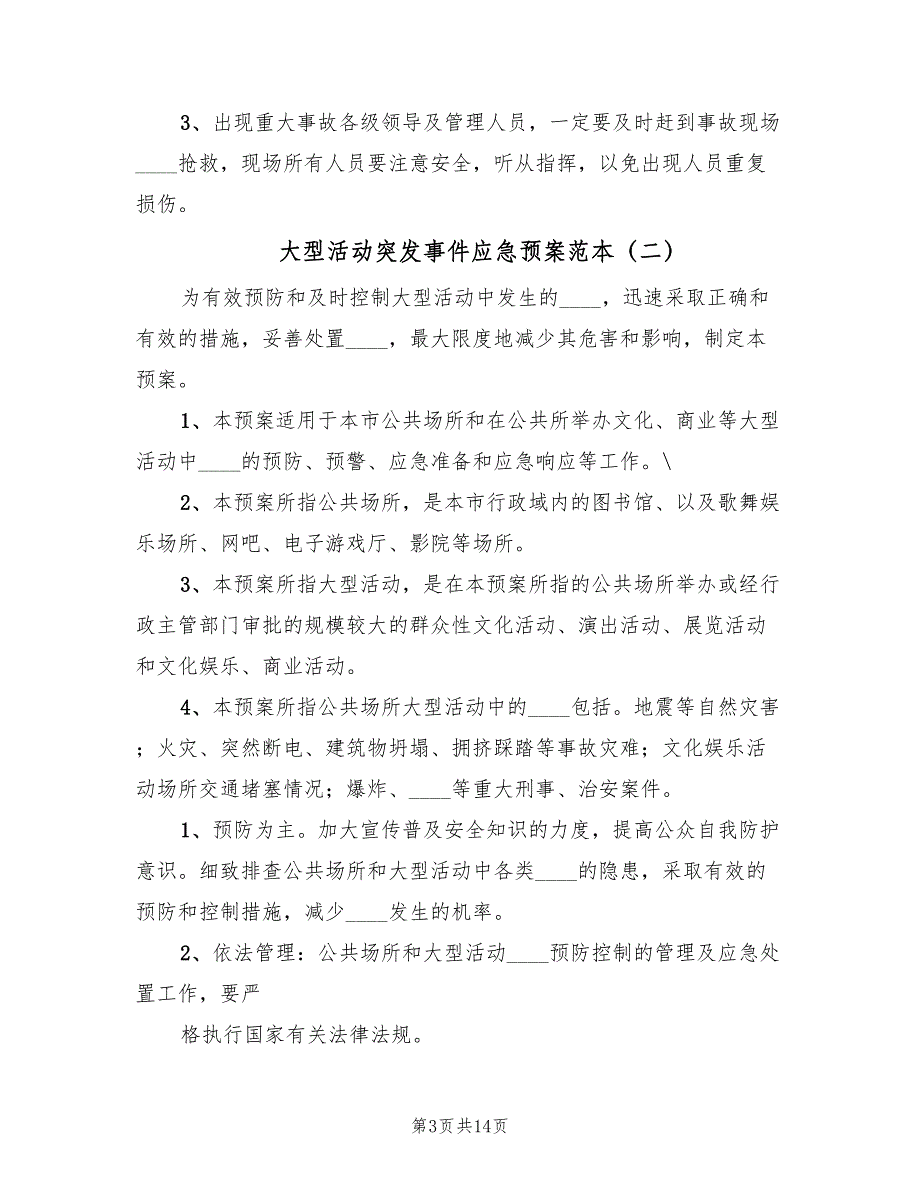 3、出现重大事故各级领导及管理人员，一定要及时赶到事故现场
____抢救，现场所有人员要注意安全，听从指挥，以免出现人员重复
损伤。
大型活动突发事件应急预案范本（二）
为有效预防和及时控制大型活动中发生的____，迅速采取正确和
有效的措施，妥善处置____，最大限度地减少其危害和影响，制定本
预案。
1、本预案适用于本市公共场所和在公共所举办文化、商业等大型
活动中____的预防、预警、应急准备和应急响应等工作。\
2、本预案所指公共场所，是本市行政域内的图书馆、以及歌舞娱
乐场所、网吧、电子游戏厅、影院等场所。
3、本预案所指大型活动，是在本预案所指的公共场所举办或经行
政主管部门审批的规模较大的群众性文化活动、演出活动、展览活动
和文化娱乐、商业活动。
4、本预案所指公共场所大型活动中的____包括。地震等自然灾害
；火灾、突然断电、建筑物坍塌、拥挤踩踏等事故灾难；文化娱乐活
动场所交通堵塞情况；爆炸、____等重大刑事、治安案件。
1、预防为主。加大宣传普及安全知识的力度，提高公众自我防护
意识。细致排查公共场所和大型活动中各类____的隐患，采取有效的
预防和控制措施，减少____发生的机率。
2、依法管理：公共场所和大型活动____预防控制的管理及应急处
置工作，要严
格执行国家有关法律法规。
第3页共14页